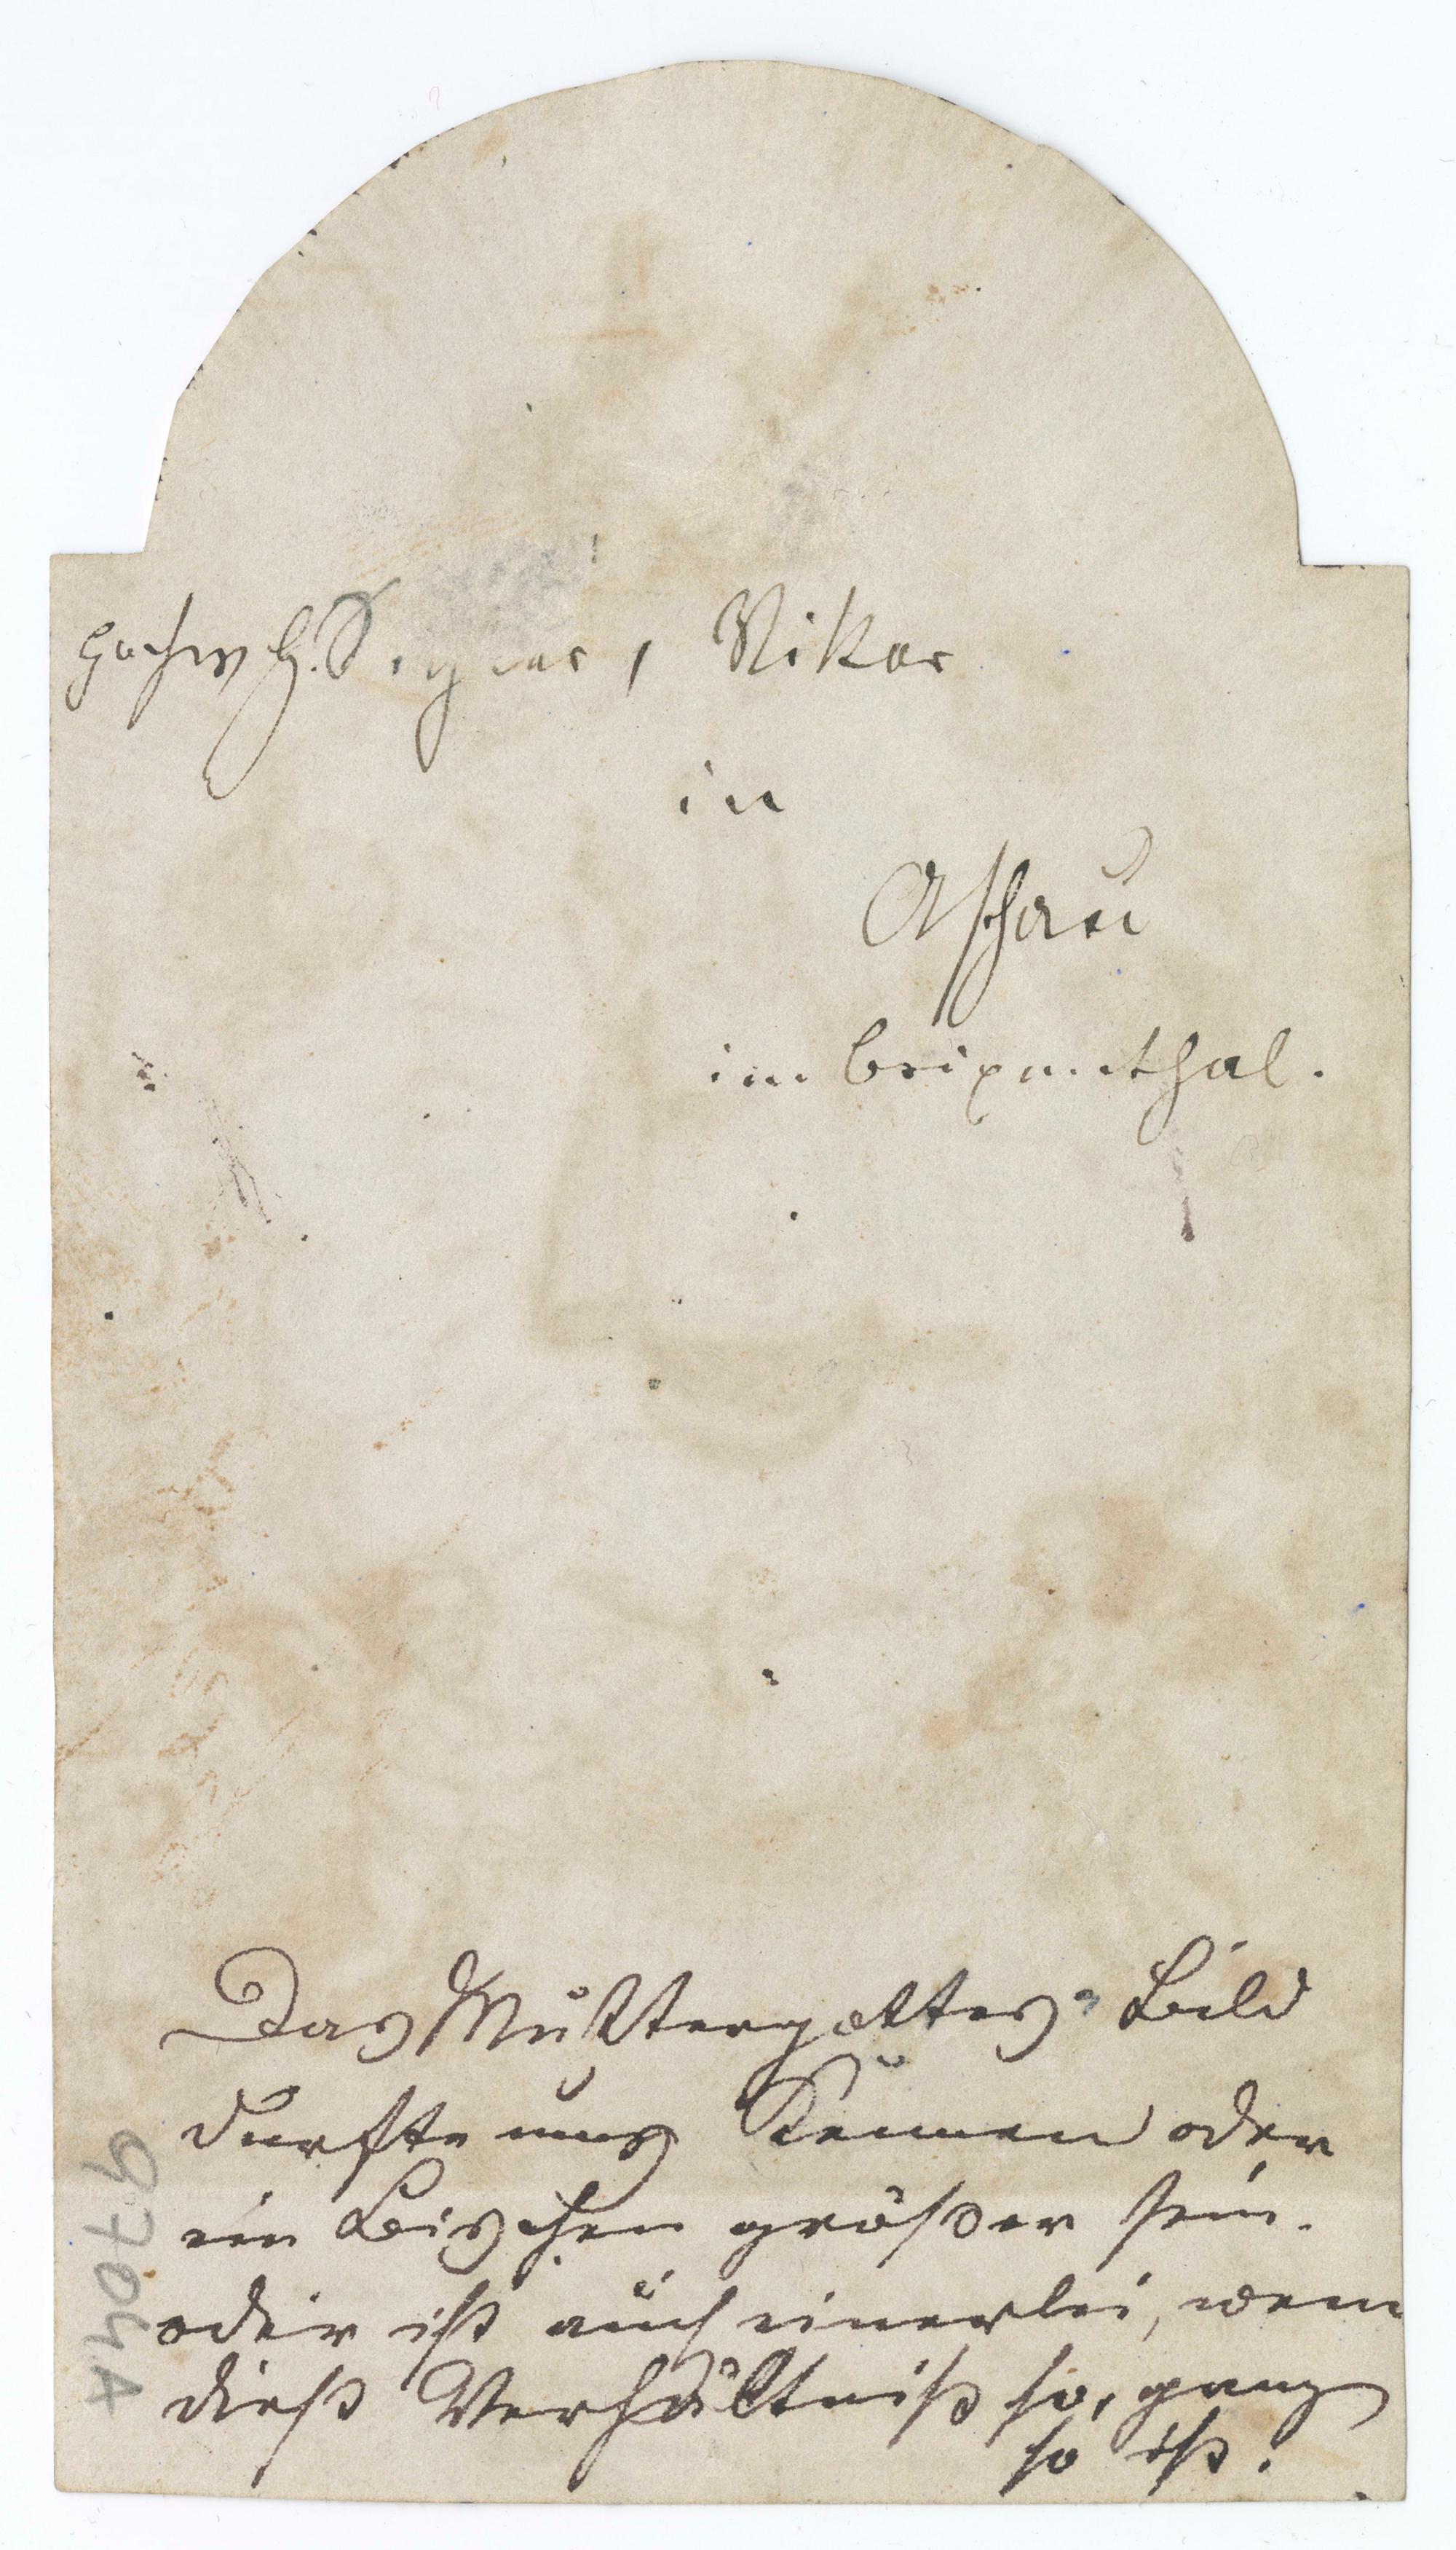 Hochw H. , Vikar
in
Aschau
im Brixenthal.
Das Muttergottes-Bild
dürfte uns kennen oder
ein Bischen größer sein.
oder ist auch einerlei, wenn
dieß Verhältniß so, ganz
so ist.